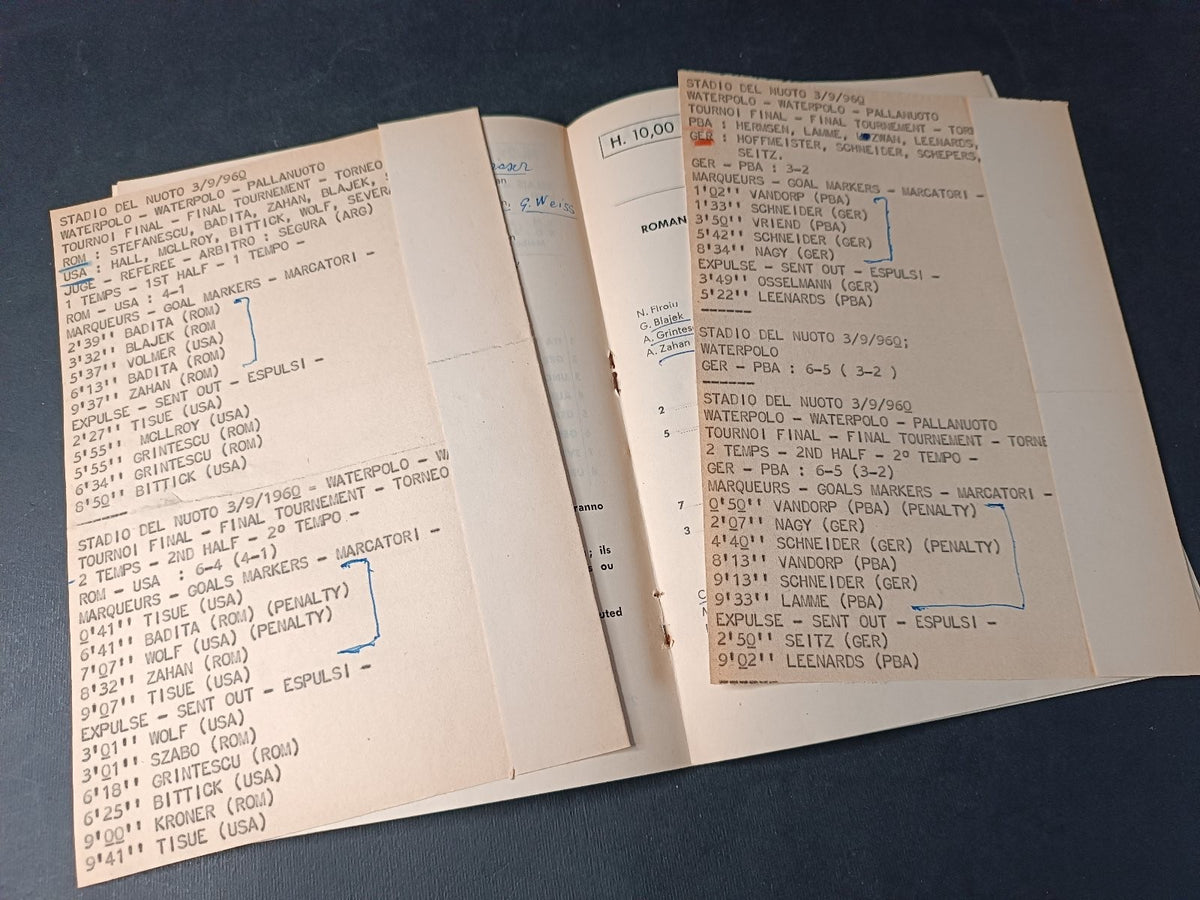 STADIO DEL NUOTO 3/9/960
WATERPOLO - WATERPOLO - PALLANUOTO
TOURNOI FINAL - FINAL TOURNEMENT - TORNEO
ROM : STEFANESCU, BADITA, ZAHAN, BLAJEK,
USA : HALL, MCLLROY, BITTICK, WOLF, SEVERA
JUGE - REFEREE - ARBITRO : SEGURA (ARG)
1 TEMPS - 1ST HALF - 1 TEMPO -
ROM - USA : 4-1
MARQUEURS - GOAL MARKERS - MARCATORI -
2'39'' BADITA (ROM)
3'32'' BLAJEK (ROM
5'37'' VOLMER (USA)
6'13'' BADITA (ROM)
9'37'' ZAHAN (ROM)
EXPULSE - SENT OUT - ESPULSI -
2'27'' TISUE (USA)
5'55'' MCLLROY (USA)
5'55'' GRINTESCU (ROM)
6'34'' GRINTESCU (ROM)
8'50'' BITTICK (USA)
-------
STADIO DEL NUOTO 3/9/1960 = WATERPOLO - W
TOURNOI FINAL - FINAL TOURNEMENT - TORNEO
2 TEMPS - 2ND HALF - 2º TEMPO -
ROM - USA : 6-4 (4-1)
MARQUEURS - GOALS MARKERS - MARCATORI -
0'41'' TISUE (USA)
6'41'' BADITA (ROM) (PENALTY)
7'07'' WOLF (USA) (PENALTY)
8'32'' ZAHAN (ROM)
9'07'' TISUE (USA)
EXPULSE - SENT OUT - ESPULSI -
3'01'' WOLF (USA)
3'01'' SZABO (ROM)
6'18'' GRINTESCU (ROM)
6'25'' BITTICK (USA)
9'00'' KRONER (ROM)
9'41'' TISUE (USA)
G. Weiss
ranno
; ils
ou
uted
H. 10,00
ROMAN
N. Firoiu
G. Blajek
A. Grintes
A. Zahan
2
5
7
3
STADIO DEL NUOTO 3/9/960
WATERPOLO - WATERPOLO - PALLANUOTO
TOURNOI FINAL - FINAL TOURNEMENT - TOR
PBA : HERMSEN, LAMME, ZWAN, LEENARDS,
GER : HOFFMEISTER, SCHNEIDER, SCHEPERS,
SEITZ.
GER - PBA : 3-2
MARQUEURS - GOAL MARKERS - MARCATORI -
1'02'' VANDORP (PBA)
1'33'' SCHNEIDER (GER)
3'50'' VRIEND (PBA)
5'42'' SCHNEIDER (GER)
8'34'' NAGY (GER)
EXPULSE - SENT OUT - ESPULSI -
3'49'' OSSELMANN (GER)
5'22'' LEENARDS (PBA)
-------
STADIO DEL NUOTO 3/9/960;
WATERPOLO
GER - PBA : 6-5 ( 3-2 )
-------
STADIO DEL NUOTO 3/9/960
WATERPOLO - WATERPOLO - PALLANUOTO
TOURNOI FINAL - FINAL TOURNEMENT - TORNE
2 TEMPS - 2ND HALF - 2º TEMPO -
GER - PBA : 6-5 (3-2)
MARQUEURS - GOALS MARKERS - MARCATORI -
0'50'' VANDORP (PBA) (PENALTY)
2'07'' NAGY (GER)
4'40'' SCHNEIDER (GER) (PENALTY)
8'13'' VANDORP (PBA)
9'13'' SCHNEIDER (GER)
9'33'' LAMME (PBA)
EXPULSE - SENT OUT - ESPULSI -
2'50'' SEITZ (GER)
9'02'' LEENARDS (PBA)